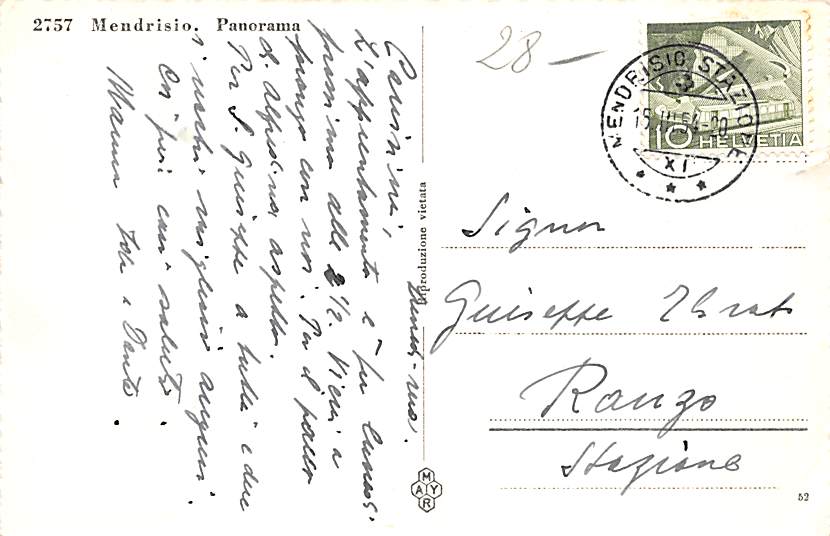 2757 Mendrisio. Panorama
Carissimi,
L'appuntamento è per lunedì
prossimo alle 2 1/2. Vieni a
pranzo con noi. Per il pacco
di Alfredino aspetto.
Per S. Giuseppe a tutti e due
i nostri migliori auguri.
Con più cari saluti
Mamma Zoli e Dante.
Riproduzione vietata
MAYR
28 —
MENDRISIO STAZIONE
15.III.54-20
XI
10 HELVETIA
Signor
Giuseppe
Ranzo
Stazione
52